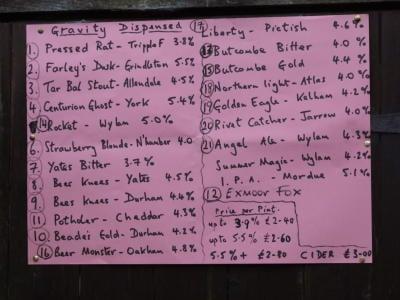 Gravity Dispensed
1. Pressed Rat - Tripple F 3.8%
2. Farley's Dusk - Grindleton 5.5%
3. Tar Bal Stout - Allendale 4.5%
4. Centurion Ghost - York 5.4%
14 Rocket - Wylam 5.0%
6. Strawberry Blonde - N'humber 4.0
7. Yates Bitter 3.7%
8. Bees Knees - Yates 4.5%
9. Bees Knees - Durham 4.4%
11 Potholer - Cheddar 4.3%
10. Beade's Gold - Durham 4.2%
16 Beer Monster - Oakham 4.8%
17 Liberty - Pictish 4.6%
Butcombe Bitter 4.0%
15 Butcombe Gold 4.4%
18 Northern light - Atlas 4.0
19 Golden Eagle - Kelham 4.2%
20 Rivet Catcher - Jarrow 4.0%
21 Angel Ale - Wylam 4.3%
Summer Magic - Wylam 4.2%
I.P.A. - Mordue 5.1%
12 EXMOOR FOX
Price per Pint.
up to 3.9% £2-40
up to 5.5% £2-60
5.5% + £2-80 CIDER £3-00